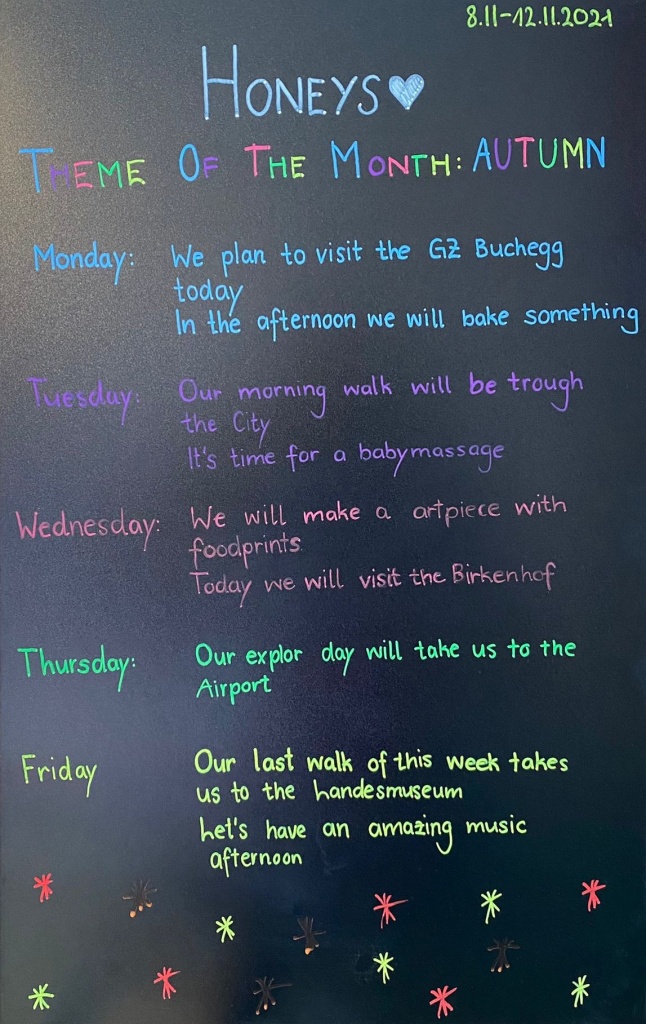 8.11-12.11.2021
HONEYS
THEME OF THE MONTH: AUTUMN
Monday: We plan to visit the GZ Buchegg
today
In the afternoon we will bake something
Tuesday: Our morning walk will be trough
the City
It's time for a babymassage
Wednesday: We will make a artpiece with
foodprints
Today we will visit the Birkenhof
Thursday: Our explor day will take us to the
Airport
Friday Our last walk of this week takes
us to the handesmuseum
Let's have an amazing music
afternoon